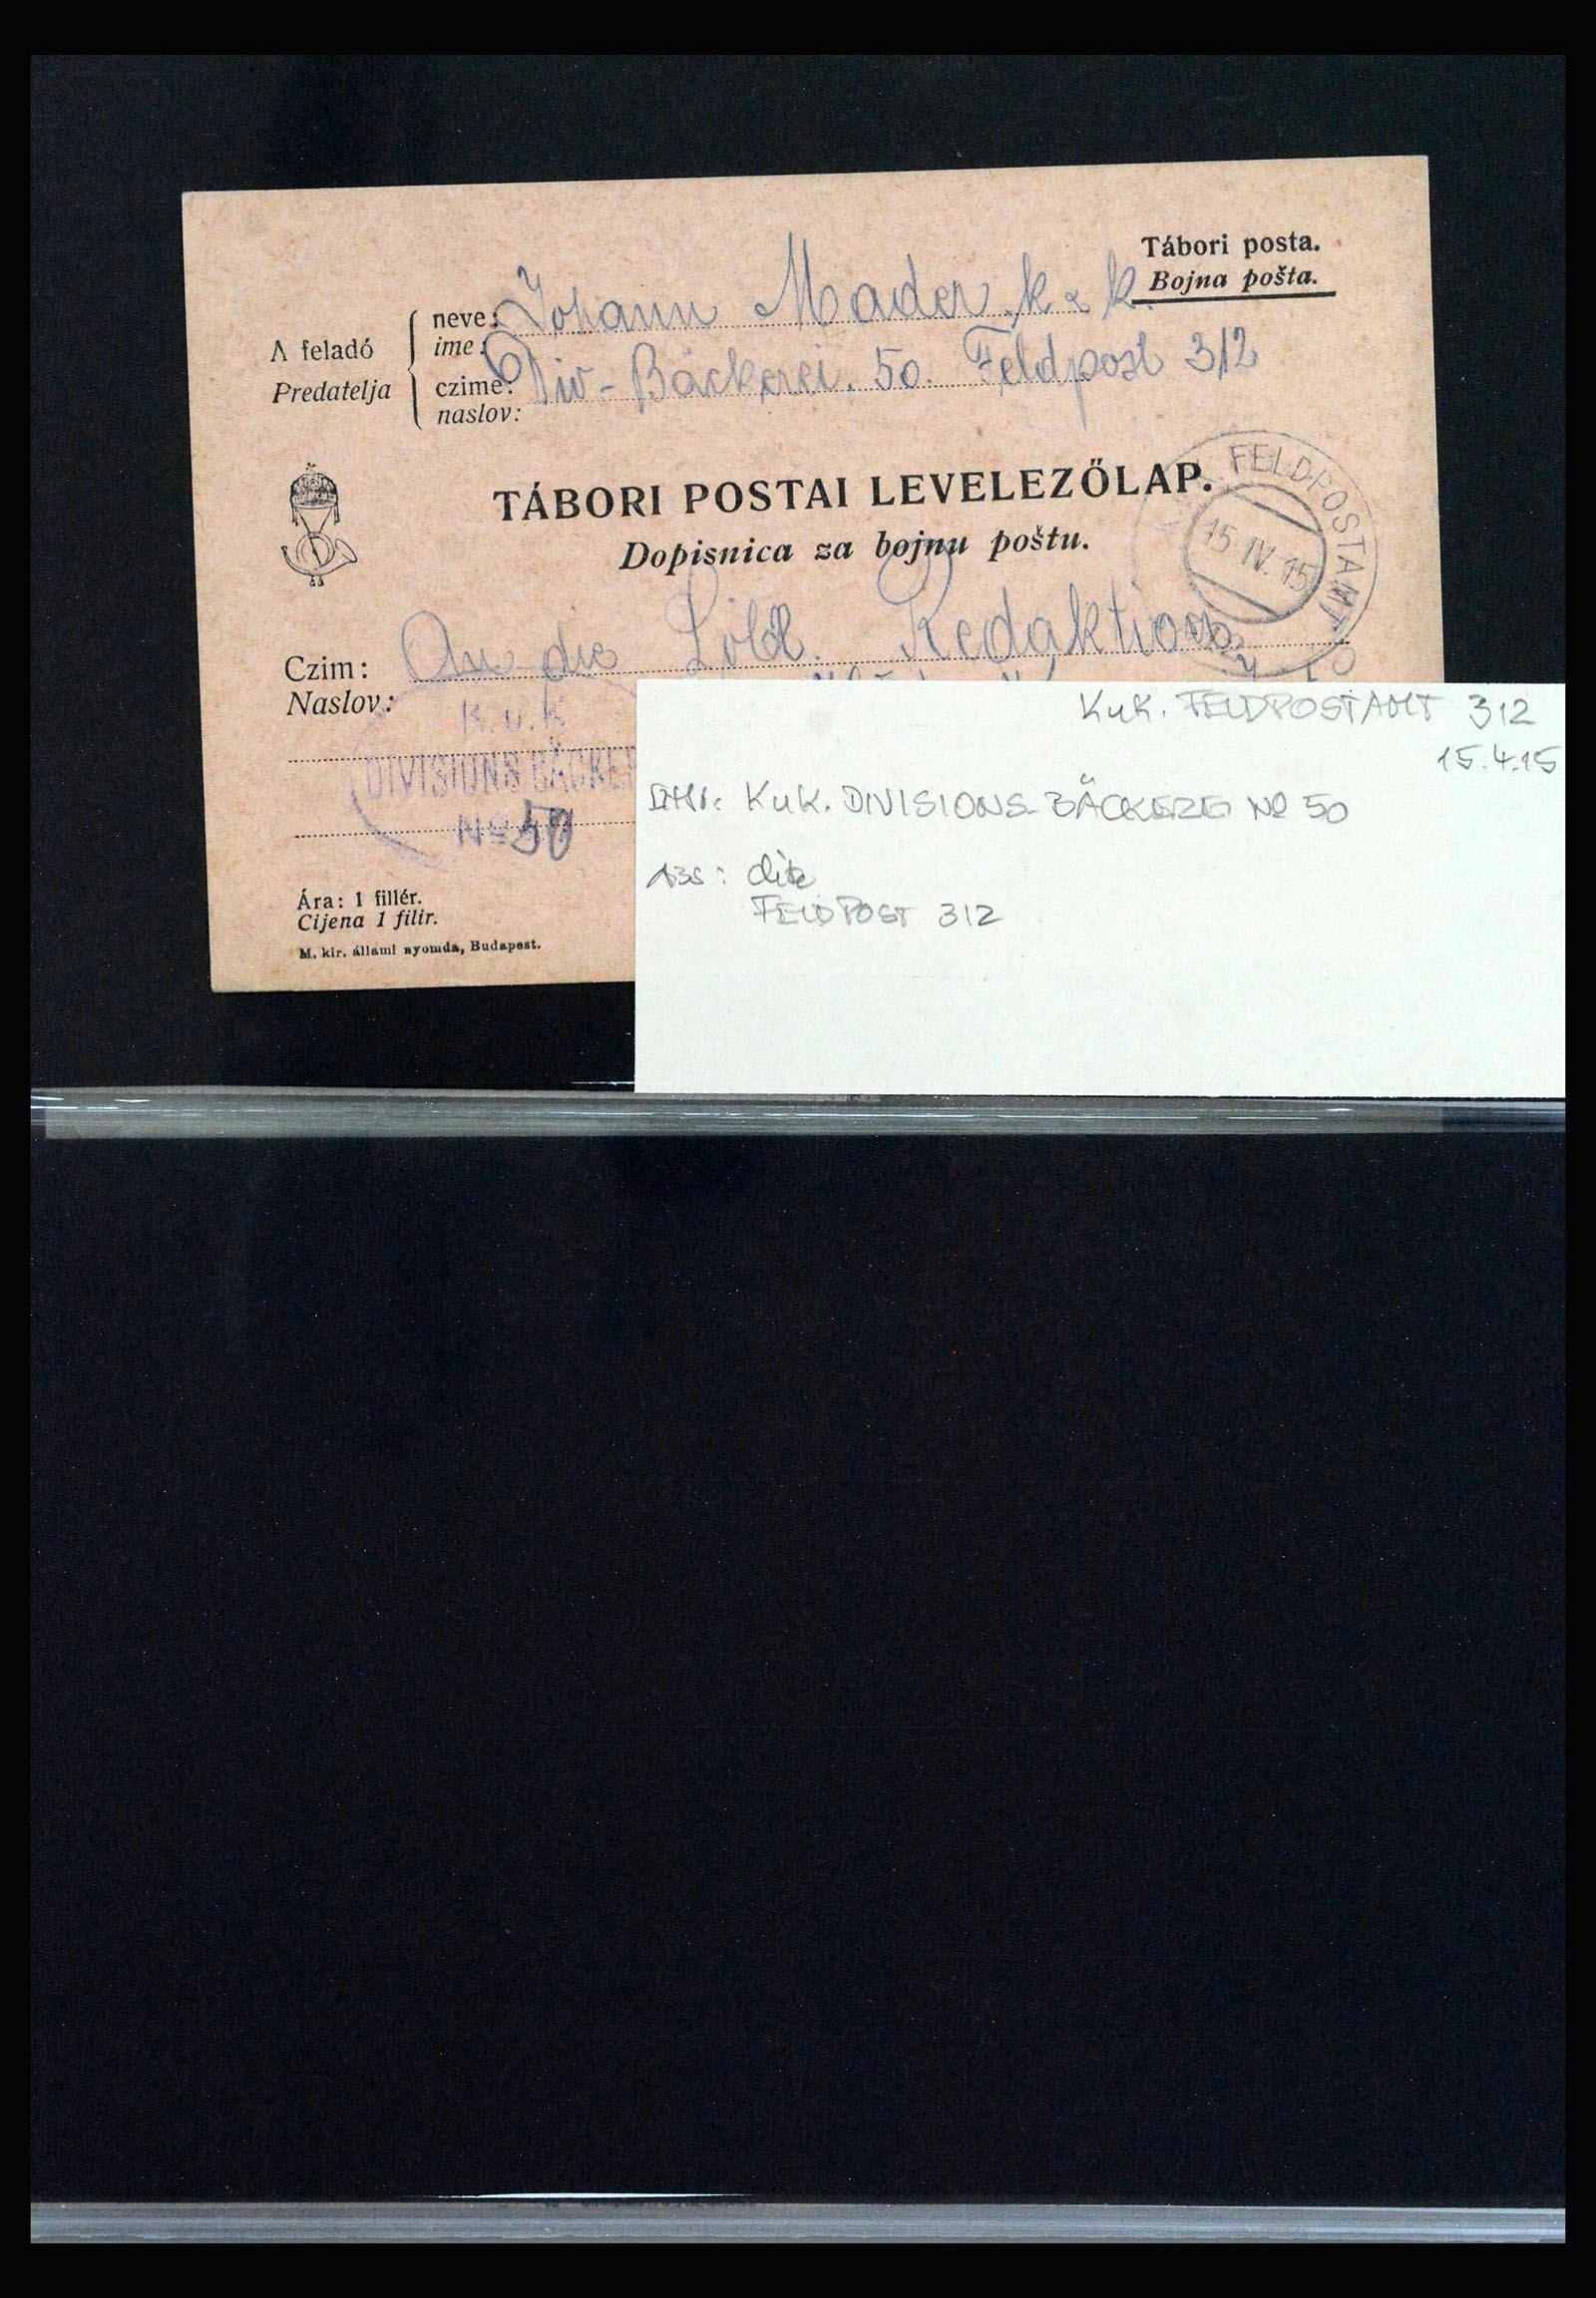 Tábori posta.
Bojna pošta.
neve: Johann Mader k. u. k.
ime:
A feladó
Predatelja
czime: Div-Bäckerei. 50. Feldpost 312
naslov:
TÁBORI POSTAI LEVELEZŐLAP.
Dopisnica za bojnu poštu.
FELDPOSTAMT
15. IV. 15
Czim: An die Löbl. Redaktion
Naslov:
K. u. K.
DIVISIONS BÄCKE
No 50
Ára: 1 fillér.
Cijena 1 filir.
M. kir. állami nyomda, Budapest.
KuK. FELDPOSTAMT 312
15.4.15
KuK. DIVISIONS-BÄCKEREI No 50
ABS: dito
FELDPOST 312